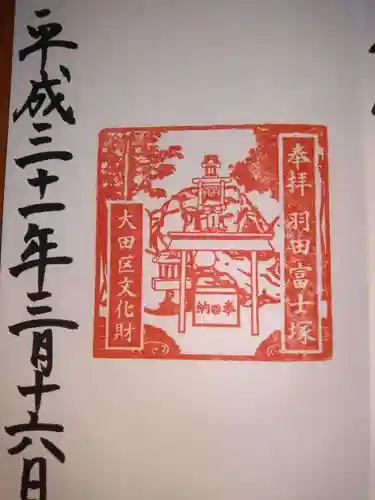 奉拝 羽田富士塚
大田区文化財
納奉
平成三十一年三月十六日